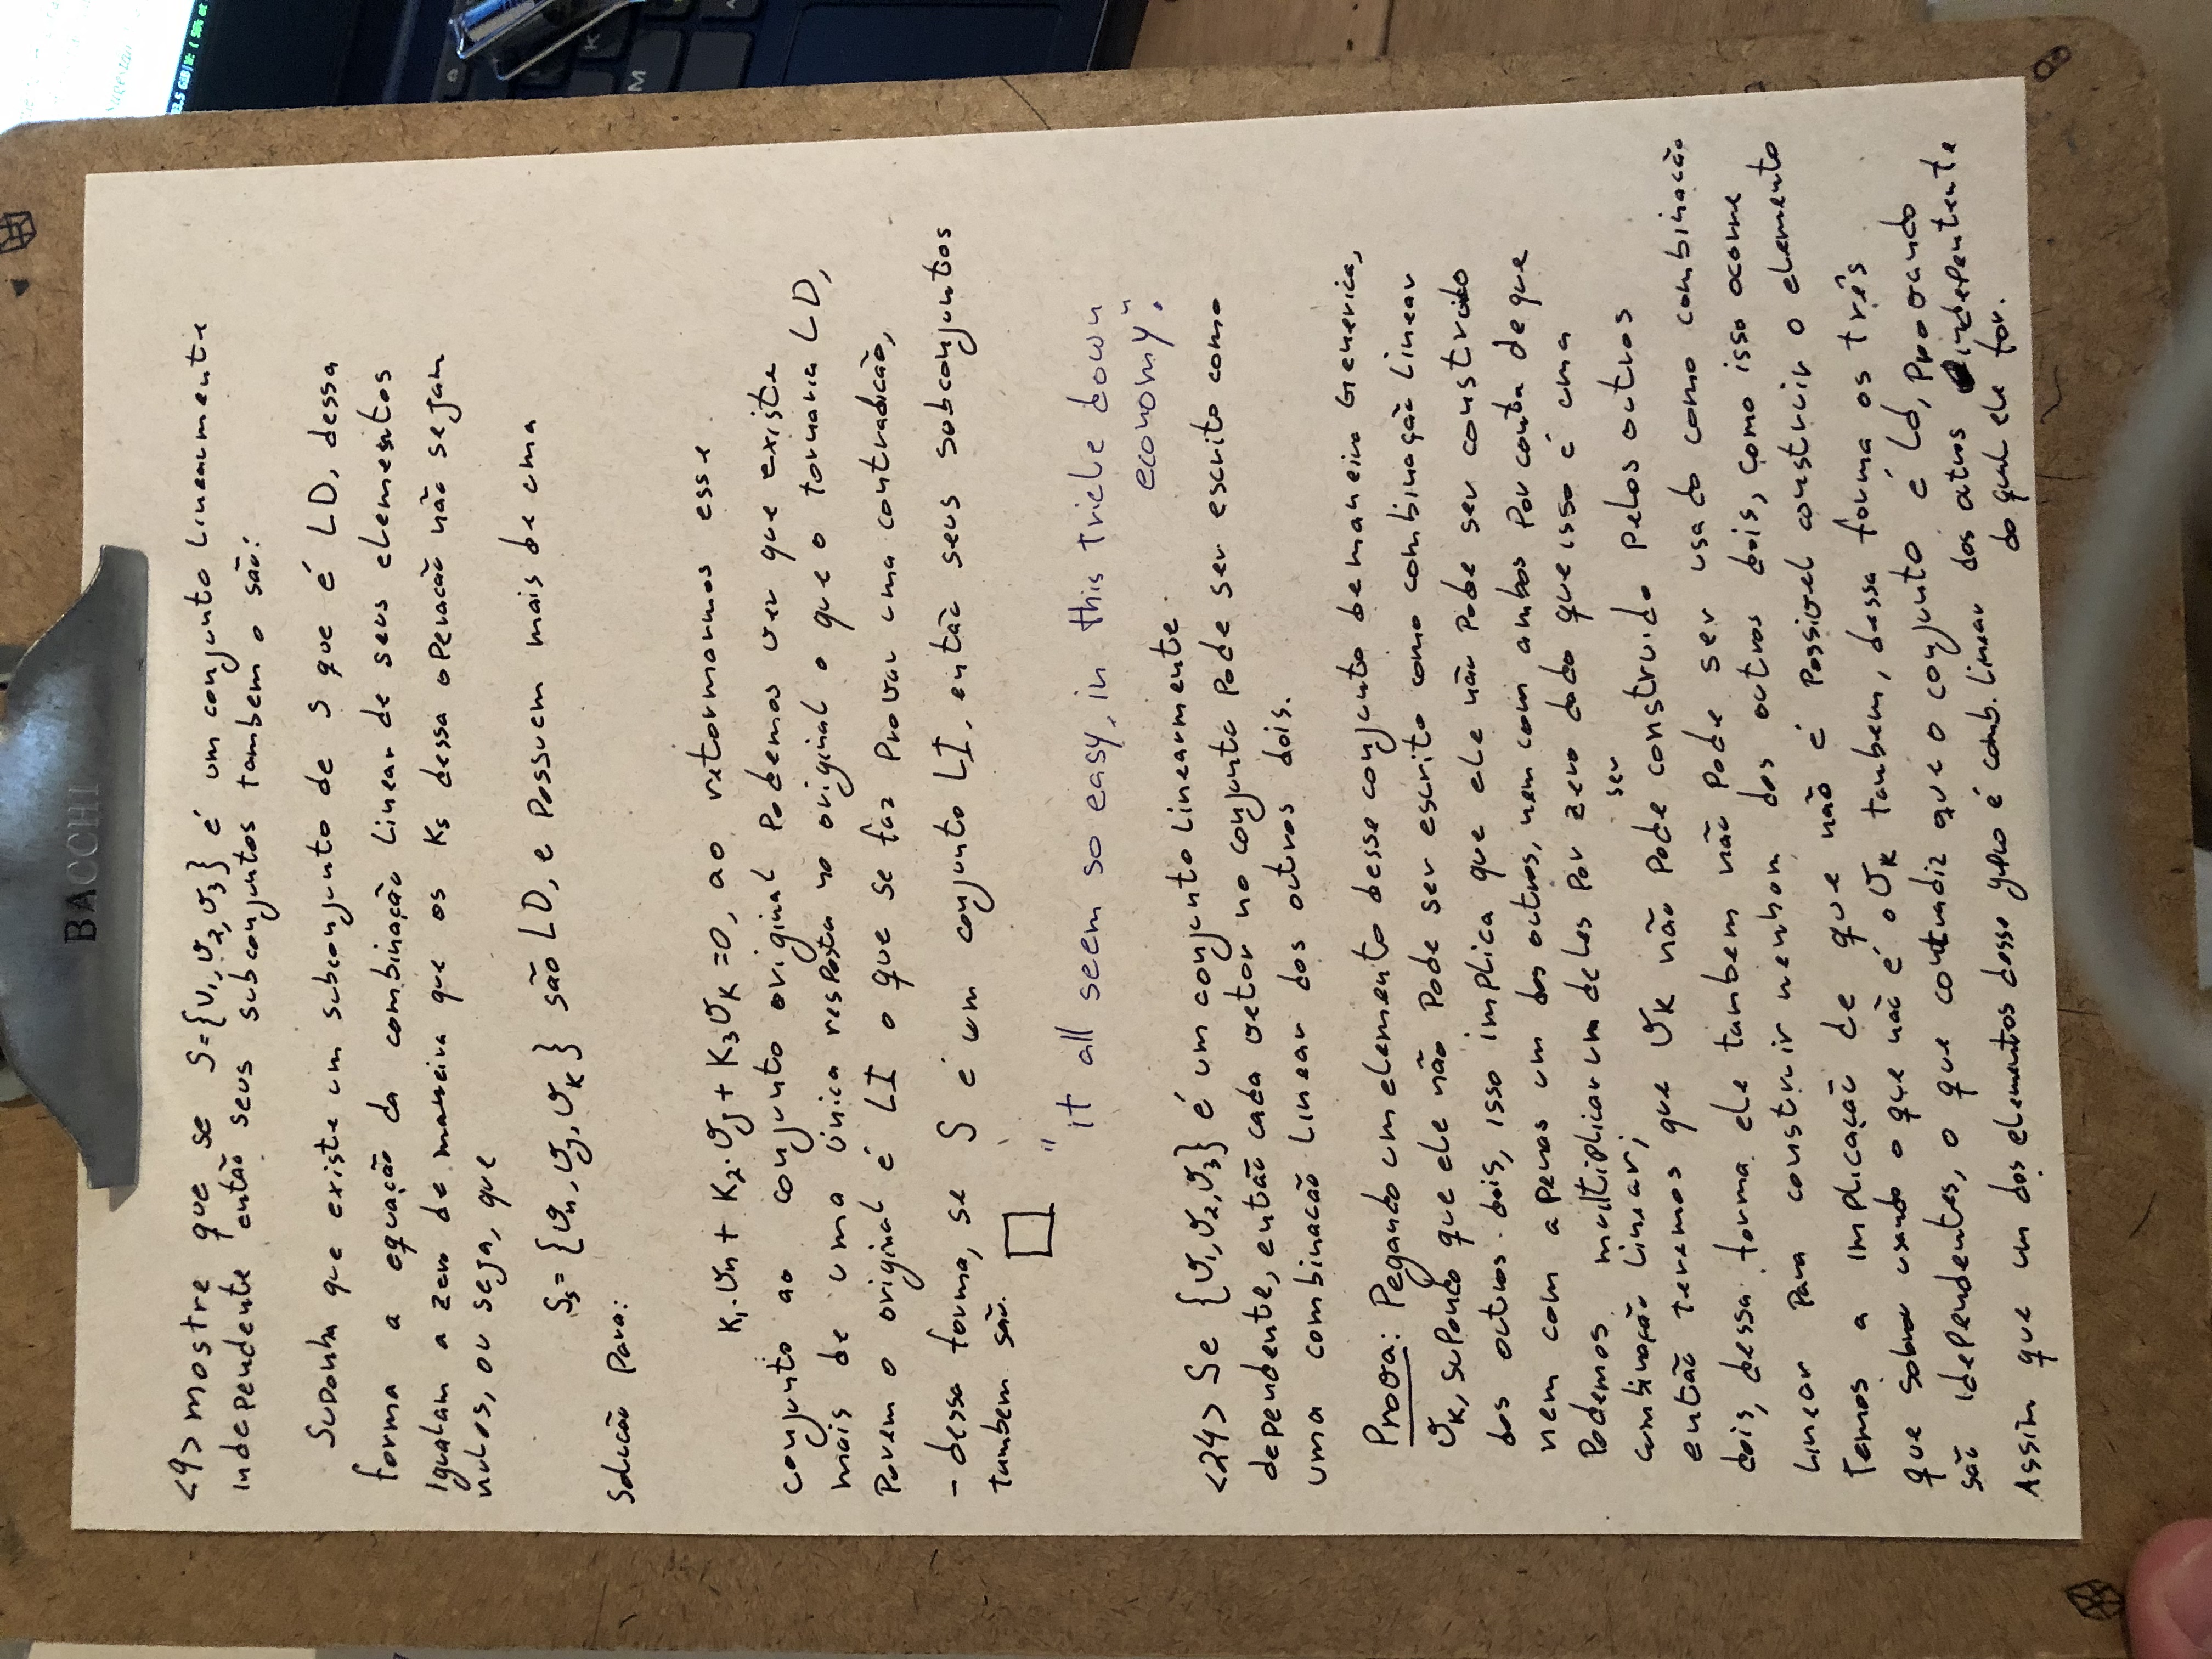 BACCHI
<9> mostre que se S={v₁,v₂,v₃} é um conjunto linearmente
independente então seus subconjuntos tambem o são:
Suponha que existe um subconjunto de S que é LD, dessa
forma a equação da combinação linear de seus elementos
igualam a zero de maneira que os Ks dessa operacão não sejam
nulos, ou seja, que
Sₛ= {vₙ, vⱼ, vₖ} são LD, e possuem mais de uma
Solucão para:
K₁.vₙ + K₂.vⱼ + K₃vₖ =0, ao retormarmos esse
conjunto ao conjunto original podemos ver que existe
mais de uma única resposta no original o que o tornaria LD,
Porem o original é LI o que se faz provar uma contradicão,
- dessa forma, se S é um conjunto LI, então seus subconjuntos
tambem são. □
"it all seem so easy, in this tricle down
economy".
<24> Se {v₁,v₂,v₃} é um conjunto linearmente
dependente, então cada vetor no conjunto pode ser escrito como
uma combinacão linear dos outros dois.
Prova: Pegando um elemento desse conjunto de maneira Generica,
vₖ, supondo que ele não pode ser escrito como combinação linear
dos outros dois, isso implica que ele não pode ser construido
nem com apenas um dos outros, nem com ambos por conta de que
Podemos multiplicar um deles por zero dado que isso é uma
combinação linear;
então teremos que vₖ não pode ser construido pelos outros
dois, dessa forma ele tambem não pode ser usado como combinacão
linear para construir nenhum dos outros dois, como isso ocorre
temos a implicação de que não é possivel construir o elemento
que sobrou usando o que não é o vₖ tambem, dessa forma os três
são idependentes, o que contradiz que o conjunto é Ld, provando
Assim que um dos elementos desse grupo é comb. linear dos outros indepentente
do qual ele for.